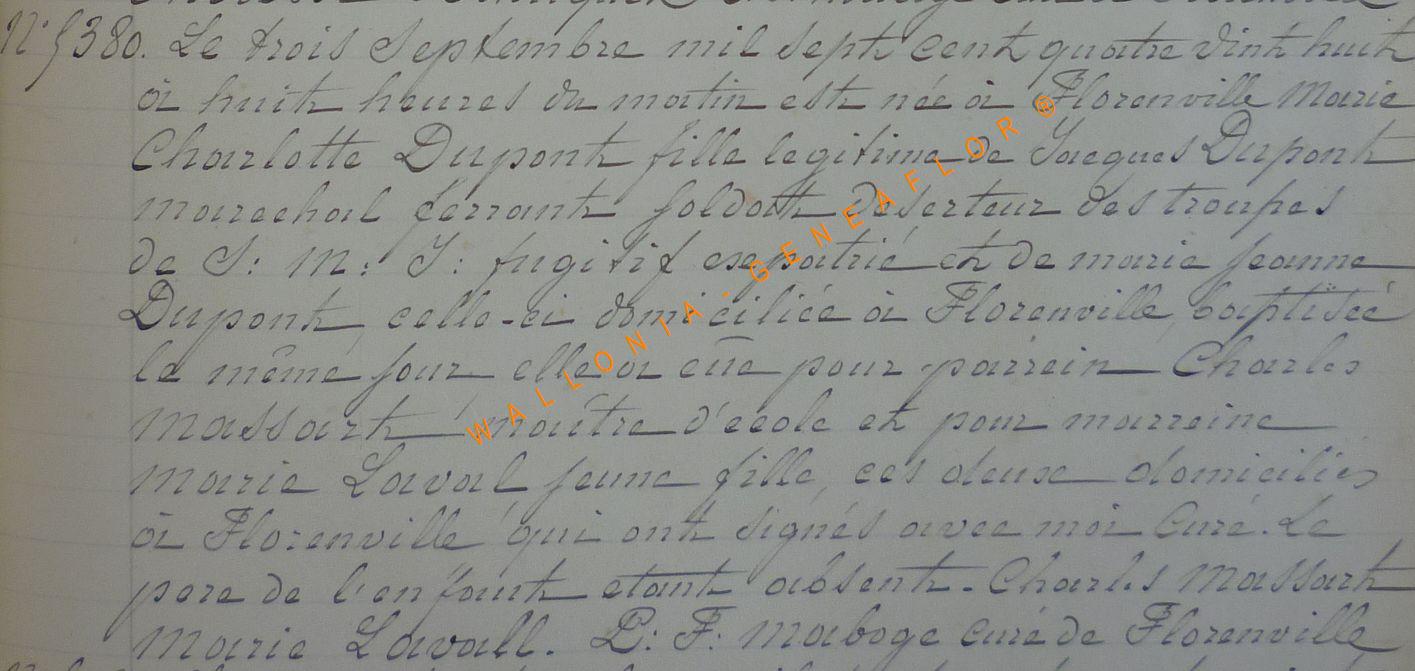 N° 5380. Le trois Septembre mil sept cent quatre vint huit
à huit heures du matin est née à Florenville Marie
Charlotte Dupont fille legitime de Jacques Dupont
marechal ferrant soldat déserteur des troupes
de S: M: I: fugitif expatrié et de marie jeanne
Dupont, celle-ci domiciliée à Florenville, baptisée
le même jour elle a eue pour parrein Charles
Massart, maître d'ecole et pour marreine
Marie Laval jeune fille, ces deux domiciliés
à Florenville qui ont signés avec moi Curé. Le
pere de l'enfant etant absent. Charles Massart
Marie Lavall. P: F: Maboge curé de Florenville
WALLONIA-GENEAFLOR®